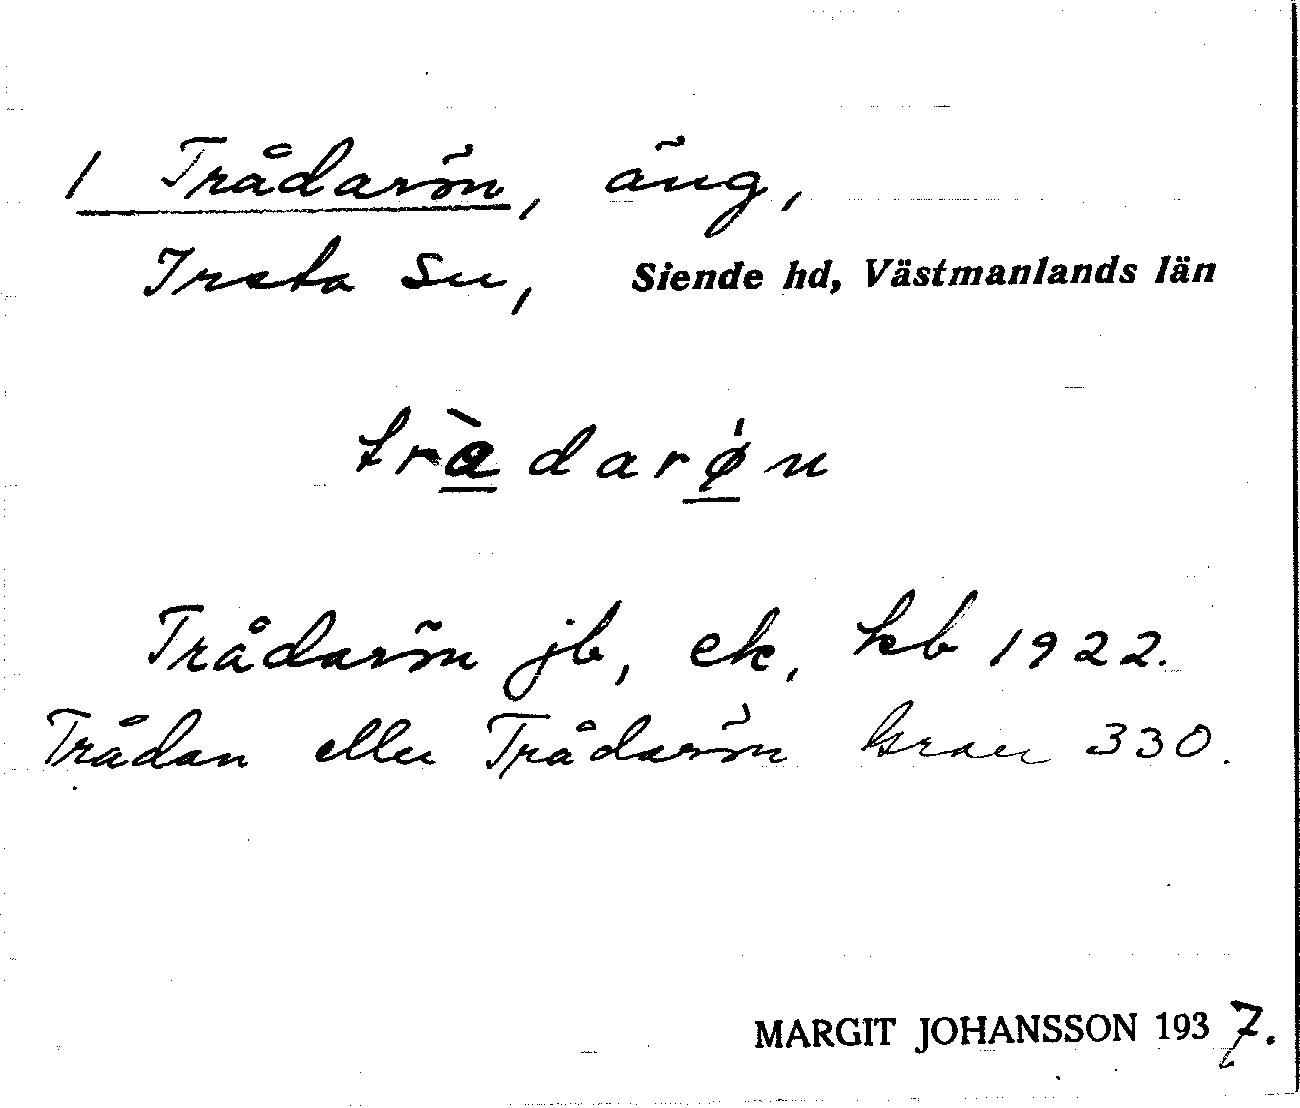 1 Trådarön, äng,
Irsta sn, Siende hd, Västmanlands län
trὰdarǿn
Trådarön jb, ek, kb 1922.
Trådan eller Trådarön Grau 330.
MARGIT JOHANSSON 1937.